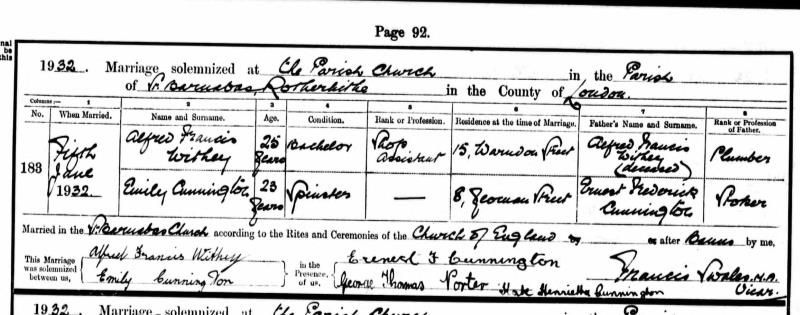 Page 92.
1932. Marriage solemnized at the Parish Church in the Parish
of St Barnabas, Rotherhithe in the County of London.
Columns:— 1 2 3 4 5 6 7 8
No. When Married. Name and Surname. Age. Condition. Rank or Profession. Residence at the time of Marriage. Father's Name and Surname. Rank or Profession of Father.
183 Fifth June 1932 Alfred Francis Withey 25 years Bachelor Shop Assistant 15, Warndon Street Alfred Francis Withey (deceased) Plumber
Emily Cunnington 23 years Spinster — 8, Yeoman Street Ernest Frederick Cunnington Stoker
Married in the St Barnabas Church according to the Rites and Ceremonies of the Church of England by or after Banns by me,
This Marriage was solemnized between us, Alfred Francis Withey
Emily Cunnington
in the Presence of us, Ernest F Cunnington
George Thomas Porter Kate Henrietta Cunnington
Francis Swales M.A. Vicar.
1932. Marriage solemnized at the Parish Church in the Parish